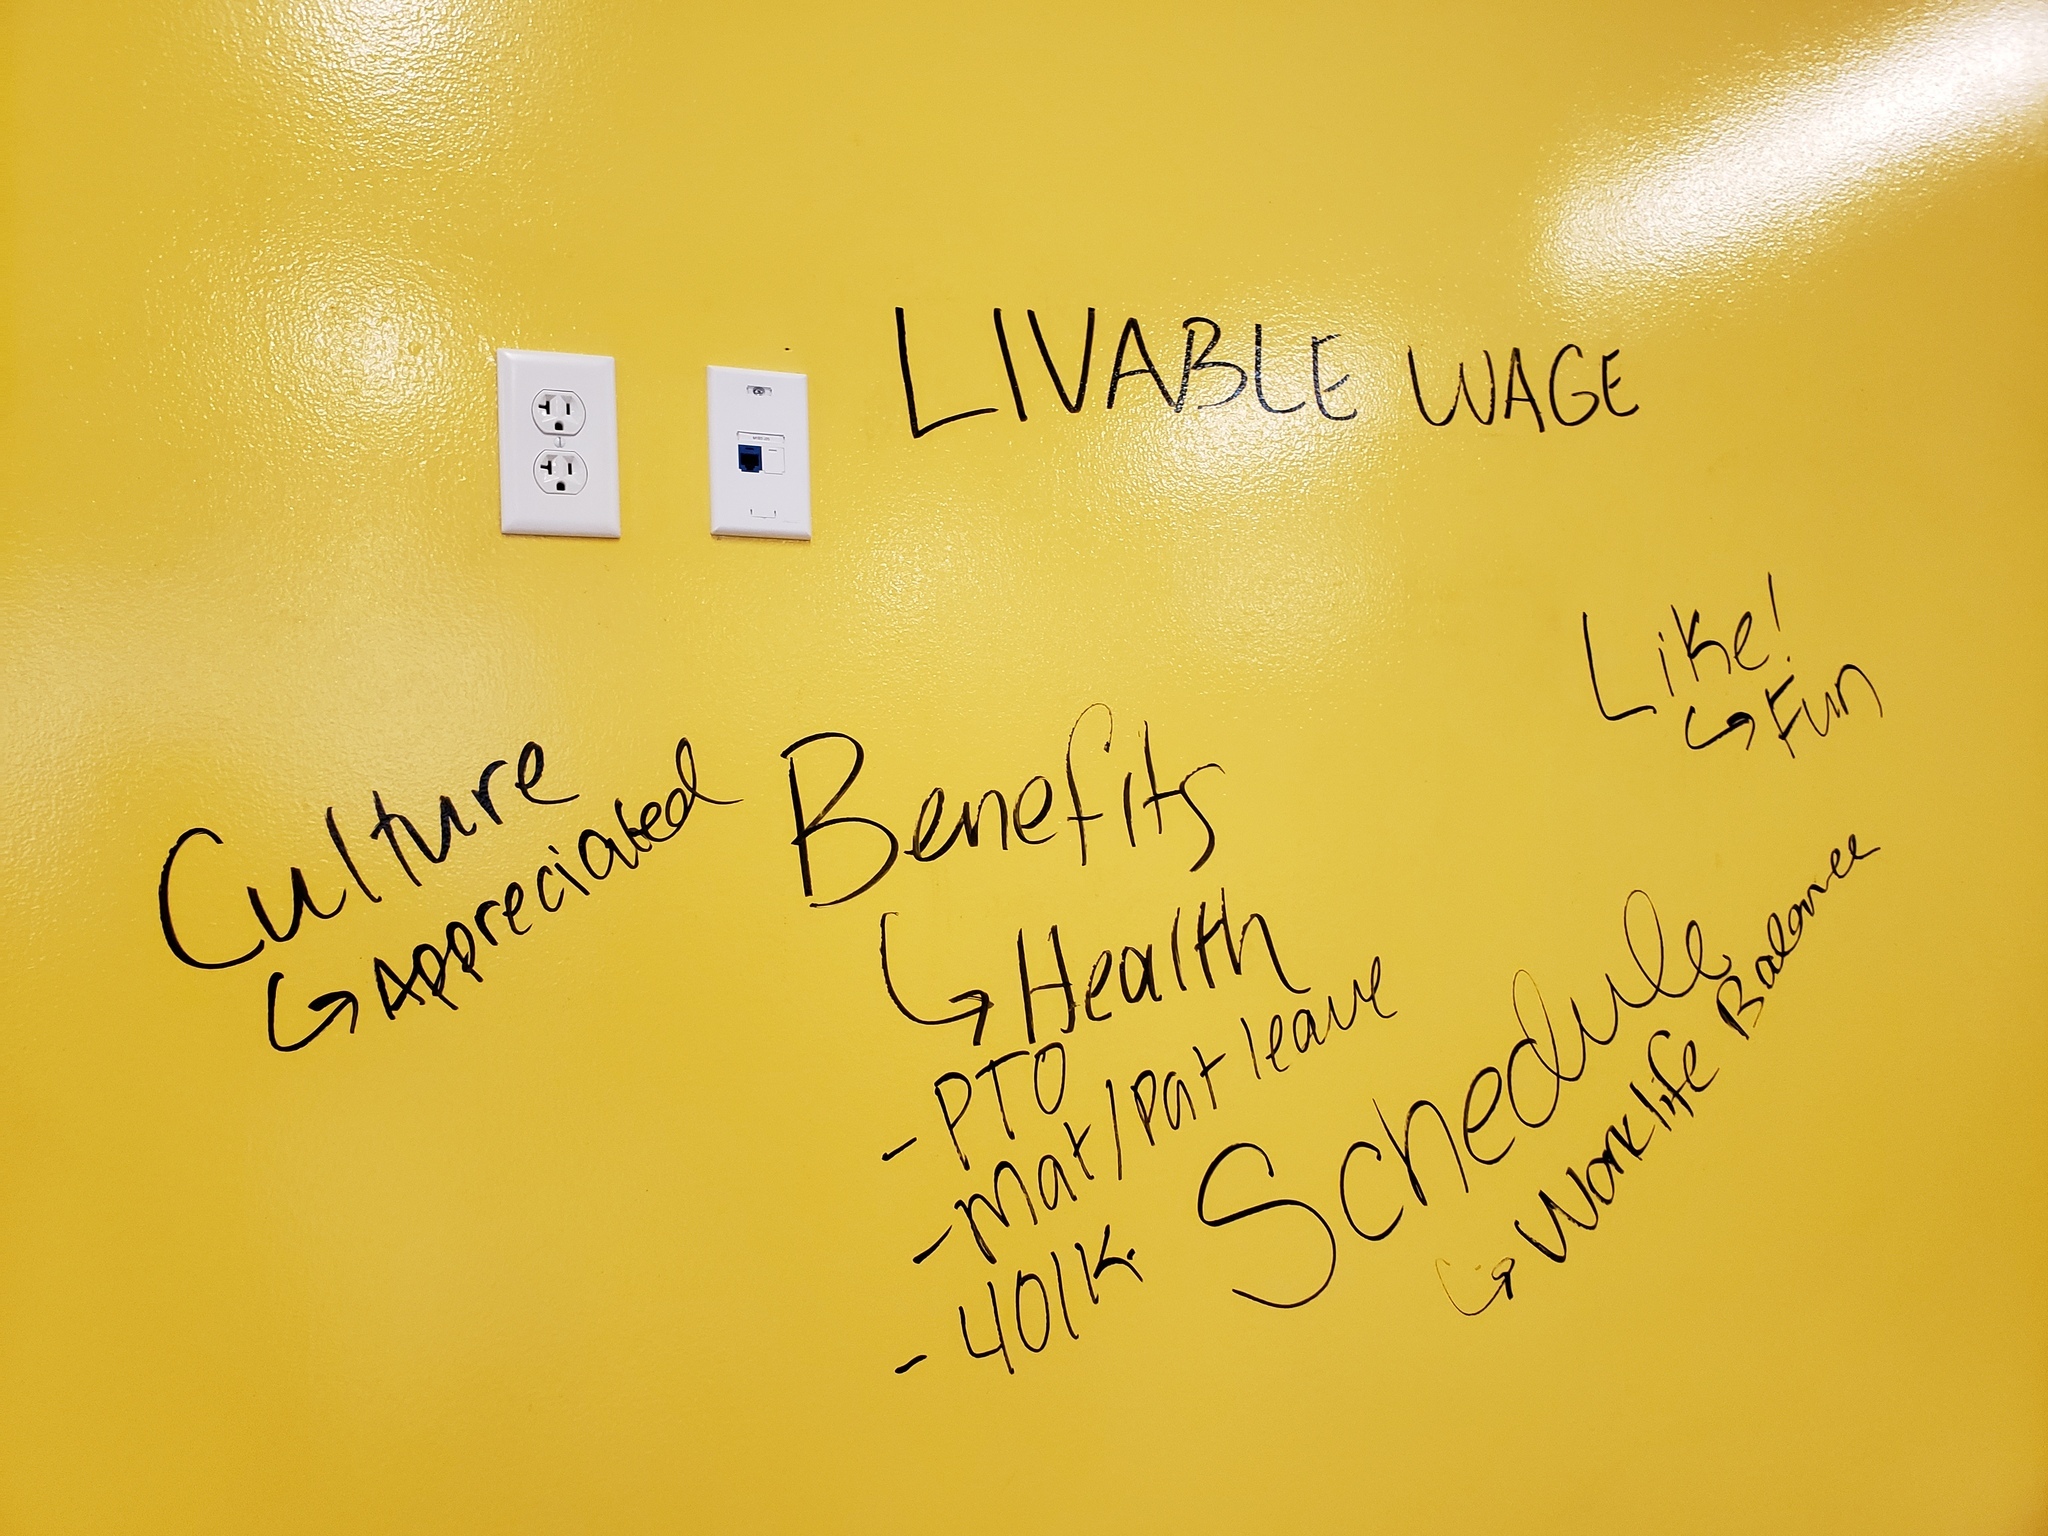 LIVABLE WAGE
Like!
↳ Fun
Culture
↳ Appreciated
Benefits
↳ Health
- PTO
- Mat/Pat leave
- 401K.
Schedule
↳ Work life Balance